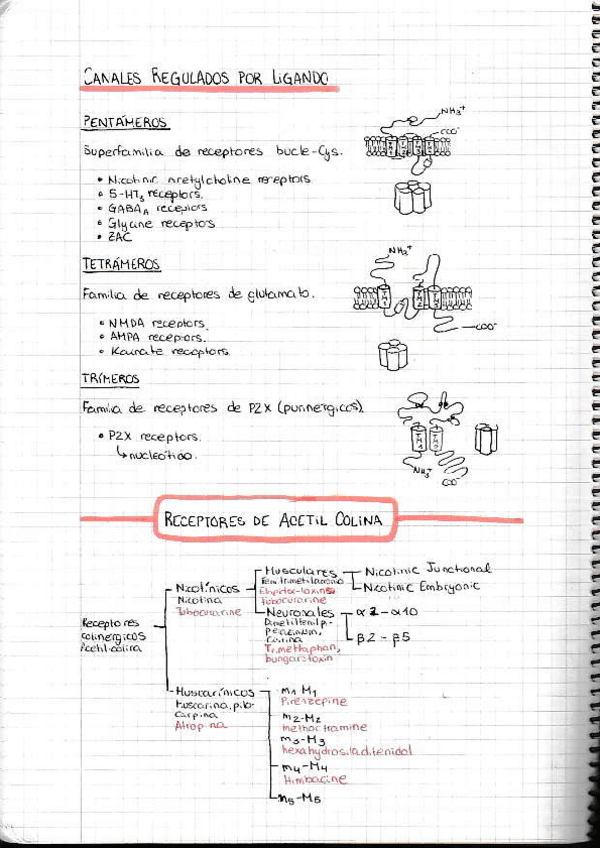 CANALES REGULADOS POR LIGANDO
PENTÁMEROS
Superfamilia de receptores bucle-Cys.
• Nicotinic acetylcholine receptors
• 5-HT3 receptors.
• GABAA receptors
• Glycine receptors
• ZAC
NH3+
COO-
TETRÁMEROS
Familia de receptores de glutamato.
• NMDA receptors.
• AMPA receptors.
• Kainate receptors.
NH3+
COO-
TRÍMEROS
Familia de receptores de P2X (purinérgicos)
• P2X receptors.
↳ nucleótido.
NH3+
COO-
RECEPTORES DE ACETIL COLINA
Receptores
colinergicos
Acetilcolina
Nicotínicos
Nicotina
Tubocurarine
Musculares
Feniltrimetilamonio
Tubocurarine
Nicotinic Junctional
Nicotinic Embryonic
Neuronales
Trimethaphan,
bungarotoxin
α2-α10
β2-β5
Muscarínicos
Muscarina, pilo-
carpina
Atropina
m1-M1
Pirenzepine
m2-M2
methoctramine
m3-M3
hexahydrosiladifenidol
m4-M4
Himbacine
m5-M5